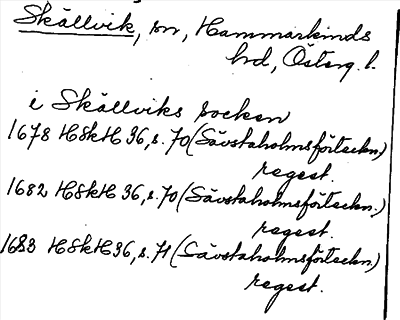 Skällvik, sn, Hammarkinds
hd, Österg. l.
i Skällviks socken
1678 HSkH 36, s. 70 (Sävstaholmsförteckn.)
regest.
1682 HSkH 36, s. 70 (Sävstaholmsförteckn.)
regest.
1683 HSkH 36, s. 71 (Sävstaholmsförteckn.)
regest.